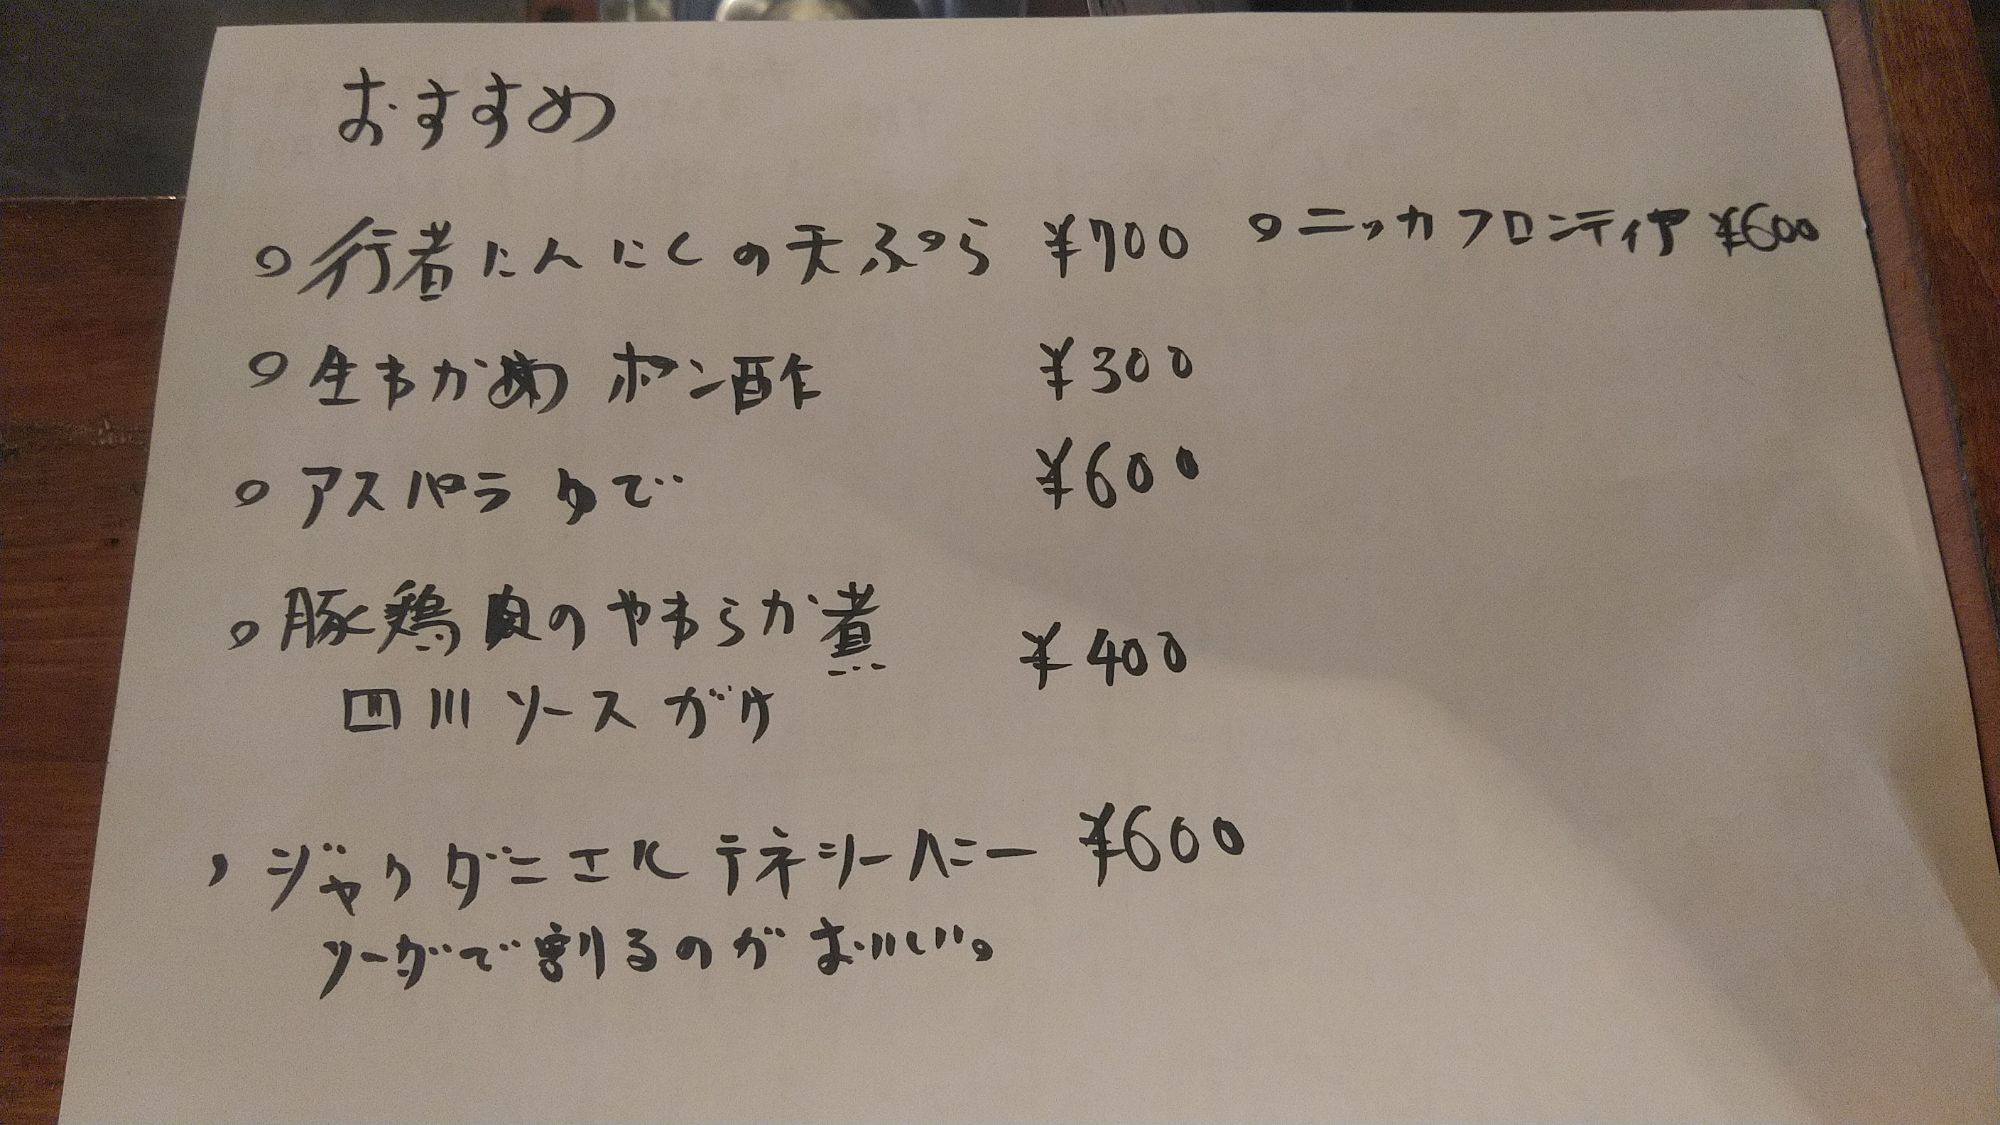 おすすめ
○行者にんにくの天ぷら ¥700
○ニッカフロンティア ¥600
○生わかめ ポン酢 ¥300
○アスパラ ゆで ¥600
○豚鶏肉のやわらか煮 ¥400
四川ソースがけ
、ジャックダニエル テネシーハニー ¥600
ソーダで割るのがおいしい。